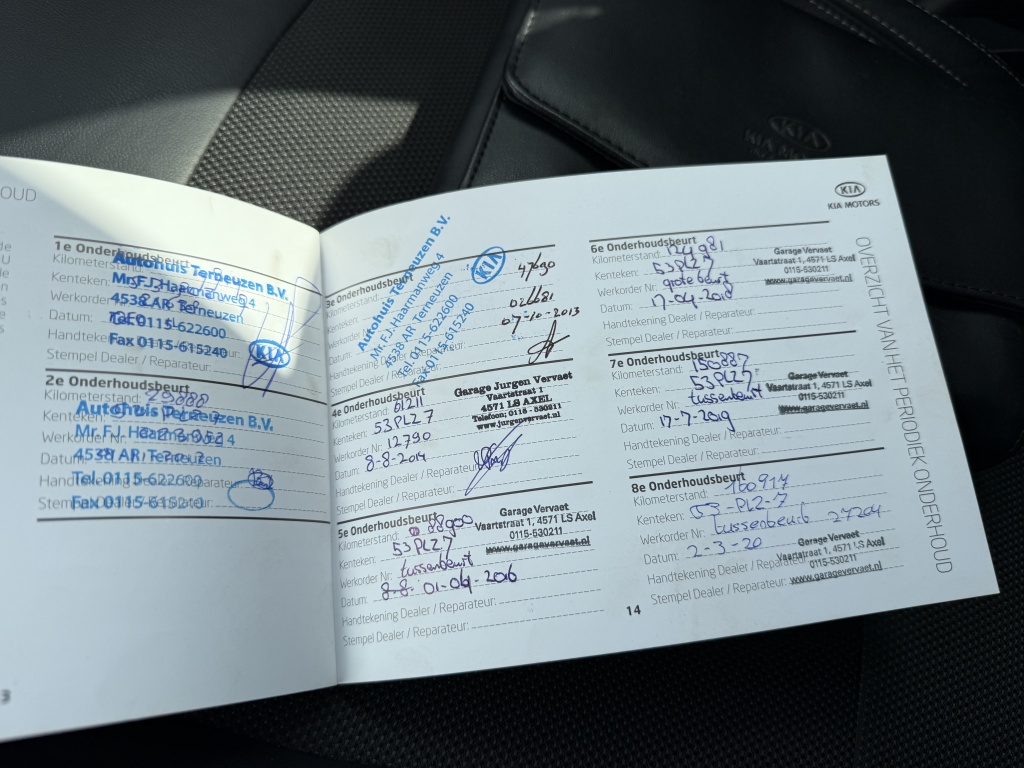 OUD
1e Onderhoudsbeurt
Kilometerstand:
Kenteken:
Werkorder
Datum:
Handtekening
Stempel Dealer / Reparateur:
Autohuis Terneuzen B.V.
Mr. F.J. Haarmanweg 4
4538 AR Terneuzen
Tel. 0115-622600
Fax 0115-615240
KIA
2e Onderhoudsbeurt
Kilometerstand: 29888
Kenteken
Werkorder Nr:
Datum:
Handtekening Dealer / Reparateur:
Stempel
Autohuis Terneuzen B.V.
Mr. F.J. Haarmanweg 4
4538 AR Terneuzen
Tel. 0115-622600
Fax 0115-615240
3
3e Onderhoudsbeurt
Kilometerstand: 47690
Kenteken:
Werkorder Nr:
Datum: 07-10-2013
Handtekening Dealer
Stempel Dealer /
Autohuis Terneuzen B.V.
Mr. F.J. Haarmanweg 4
4538 AR Terneuzen
Tel. 0115-622600
Fax 0115-615240
KIA
4e Onderhoudsbeurt
Kilometerstand: 61211
Kenteken: 53PLZ7
Werkorder Nr: 12790
Datum: 8-8-2014
Handtekening Dealer / Reparateur:
Stempel Dealer / Reparateur:
Garage Jurgen Vervaet
Vaartstraat 1
4571 LS AXEL
Telefoon: 0115 - 530211
www.jurgenvervaet.nl
5e Onderhoudsbeurt
Kilometerstand: 88900
Kenteken: 53PLZ7
Werkorder Nr: tussenbeurt
Datum: 8-8- 01-04-2016
Handtekening Dealer / Reparateur:
Stempel Dealer / Reparateur:
Garage Vervaet
Vaartstraat 1, 4571 LS Axel
0115-530211
www.garagevervaet.nl
14
KIA
KIA MOTORS
6e Onderhoudsbeurt
Kilometerstand: 124981
Kenteken: 53PLZ7
Werkorder Nr: grote beurt
Datum: 17-04-2018
Handtekening Dealer / Reparateur:
Stempel Dealer / Reparateur:
Garage Vervaet
Vaartstraat 1, 4571 LS Axel
0115-530211
www.garagevervaet.nl
7e Onderhoudsbeurt
Kilometerstand: 150887
Kenteken: 53PLZ7
Werkorder Nr: tussenbeurt
Datum: 17-7-2019
Handtekening Dealer / Reparateur:
Stempel Dealer / Reparateur:
Garage Vervaet
Vaartstraat 1, 4571 LS Axel
0115-530211
www.garagevervaet.nl
8e Onderhoudsbeurt
Kilometerstand: 160914
Kenteken: 53-PLZ-7
Werkorder Nr: tussenbeurt 27204
Datum: 2-3-20
Handtekening Dealer / Reparateur:
Stempel Dealer / Reparateur:
Garage Vervaet
Vaartstraat 1, 4571 LS Axel
0115-530211
www.garagevervaet.nl
OVERZICHT VAN HET PERIODIEK ONDERHOUD
KIA
KIA MOTORS